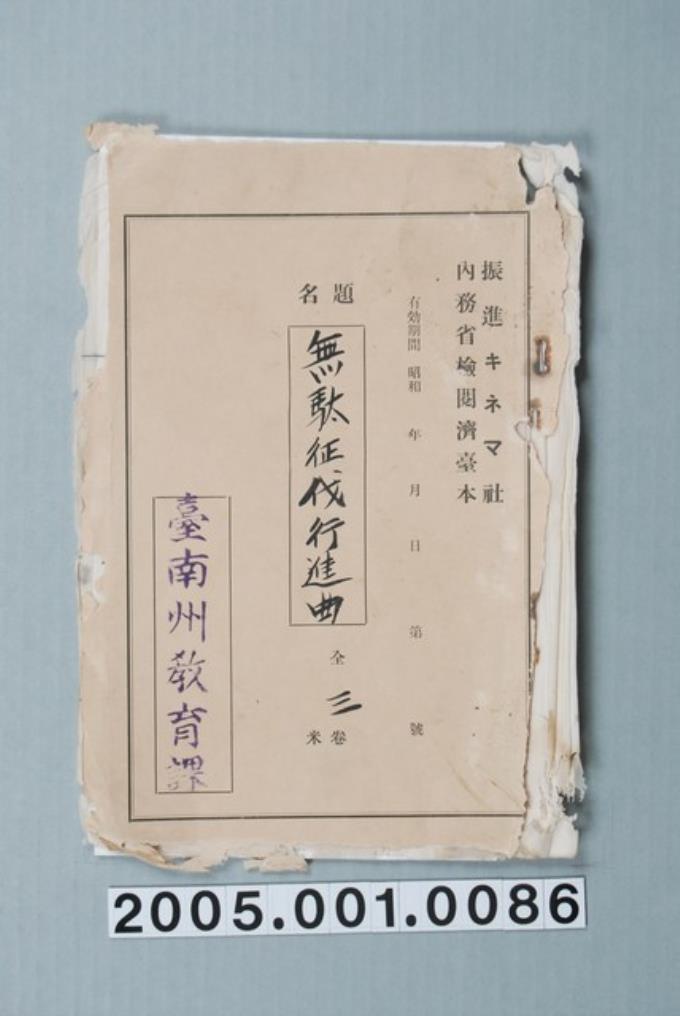 振進キネマ社
內務省檢閱濟臺本
有効期間 昭和 年 月 日 第 號
題名
無駄征伐行進曲
全三卷
米
臺南州教育課
2005.001.0086